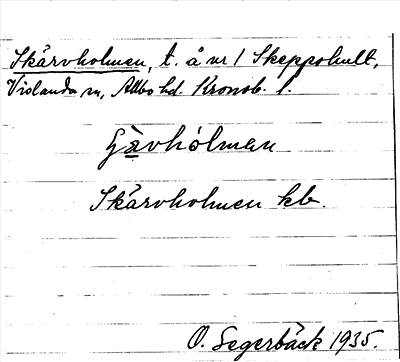 Skärvholmen, t. å nr 1 Skeppshult,
Vislanda sn, Allbo hd. Kronob. l.
Skärvholmen kb.
O. Segerbäck 1935.